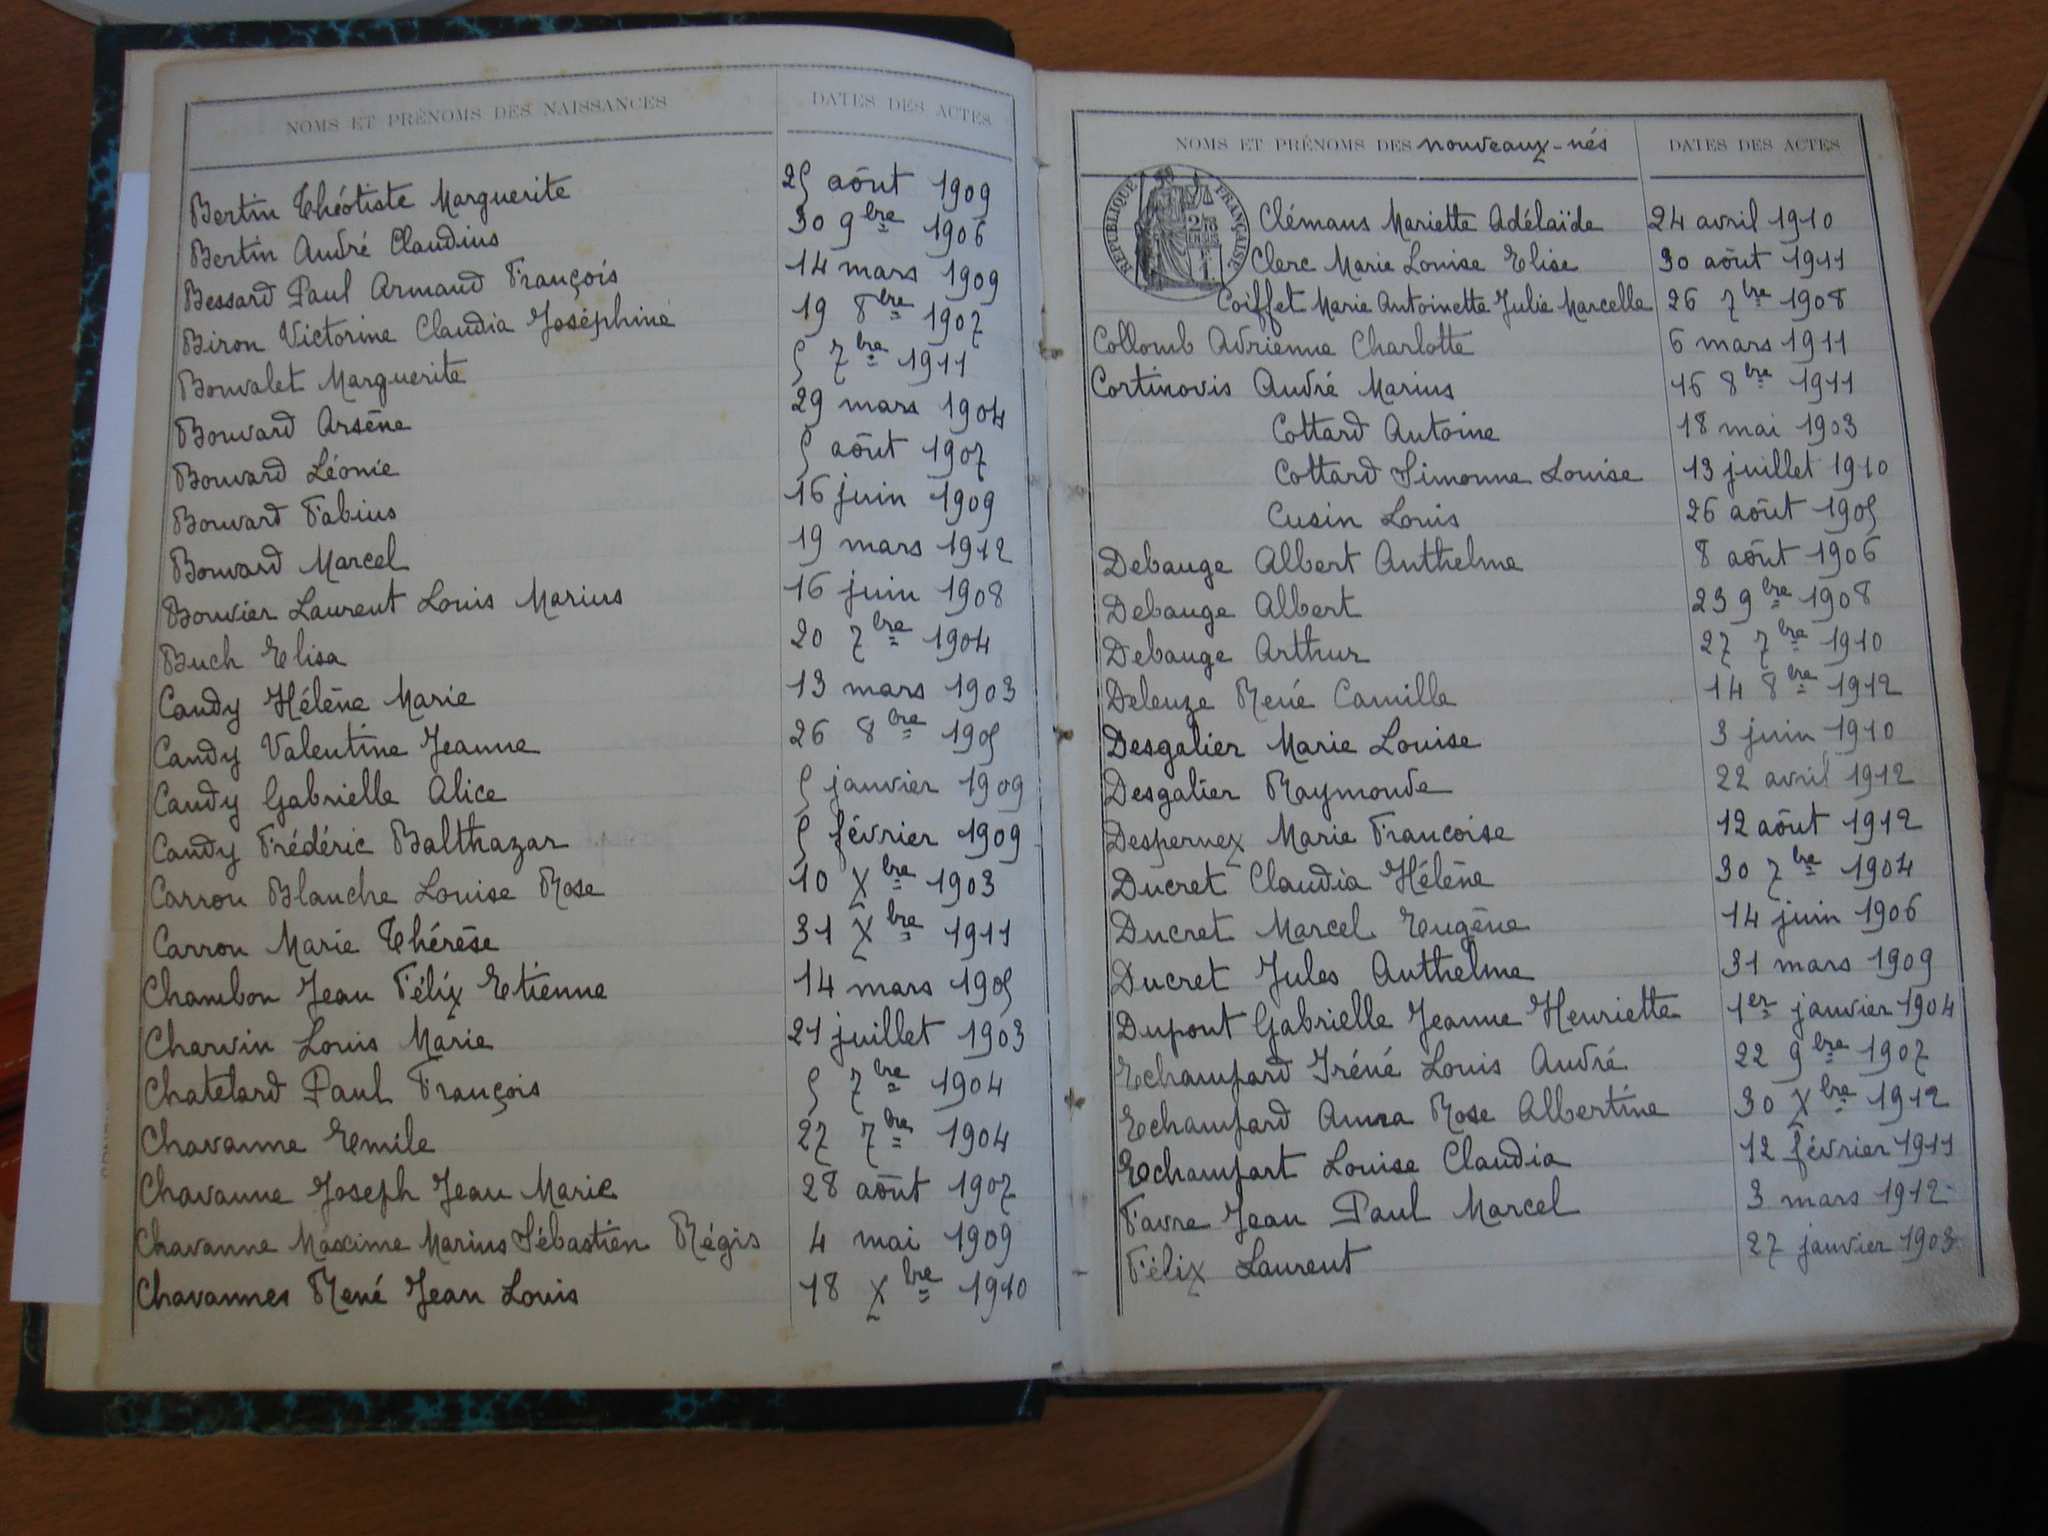 NOMS ET PRÉNOMS DES NAISSANCES DATES DES ACTES
Bertin Théotiste Marguerite 25 aôut 1909
Bertin André Claudius 30 9bre 1906
Bessard Paul Armand François 14 mars 1909
Biron Victorine Claudia Joséphine 19 8bre 1907
Bouvalet Marguerite 5 7bre 1911
Bouvard Arsène 29 mars 1904
Bouvard Léonie 5 aôut 1907
Bouvard Fabius 16 juin 1909
Bouvard Marcel 19 mars 1912
Bouvier Laurent Louis Marius 16 juin 1908
Buch Elisa 20 7bre 1904
Candy Hélène Marie 13 mars 1903
Candy Valentine Jeanne 26 8bre 1905
Candy Gabrielle Alice 5 janvier 1909
Candy Frédéric Balthazar 5 février 1909
Carron Blanche Louise Rose 10 Xbre 1903
Carron Marie Thérèse 31 Xbre 1911
Chambon Jean Félix Etienne 14 mars 1905
Charvin Louis Marie 21 juillet 1903
Chatelard Paul François 5 7bre 1904
Chavanne Emile 27 7bre 1904
Chavanne Joseph Jean Marie 28 aôut 1907
Chavanne Maxime Marius Sébastien Régis 4 mai 1909
Chavannes René Jean Louis 18 Xbre 1910
NOMS ET PRÉNOMS DES nouveaux-nés DATES DES ACTES
RÉPUBLIQUE FRANÇAISE
Clémans Mariette Adélaïde 24 avril 1910
Clerc Marie Louise Elise 30 aôut 1911
Coiffet Marie Antoinette Julie Marcelle 26 7bre 1908
Collomb Adrienne Charlotte 6 mars 1911
Cortinovis André Marius 16 8bre 1911
Cottard Antoine 18 mai 1903
Cottard Simonne Louise 13 juillet 1910
Cusin Louis 26 aôut 1905
Debauge Albert Anthelme 8 aôut 1906
Debauge Albert 23 9bre 1908
Debauge Arthur 27 7bre 1910
Deleuze René Camille 14 8bre 1912
Desgalier Marie Louise 3 juin 1910
Desgalier Raymonde 22 avril 1912
Despernex Marie Francoise 12 aôut 1912
Ducret Claudia Hélène 30 7bre 1904
Ducret Marcel Eugène 14 juin 1906
Ducret Jules Anthelme 31 mars 1909
Dupont Gabrielle Jeanne Henriette 1er janvier 1904
Echampard Iréné Louis André 22 9bre 1907
Echampard Anna Rose Albertine 30 Xbre 1912
Echampart Louise Claudia 12 février 1911
Favre Jean Paul Marcel 3 mars 1912
Félix Laurent 27 janvier 1903